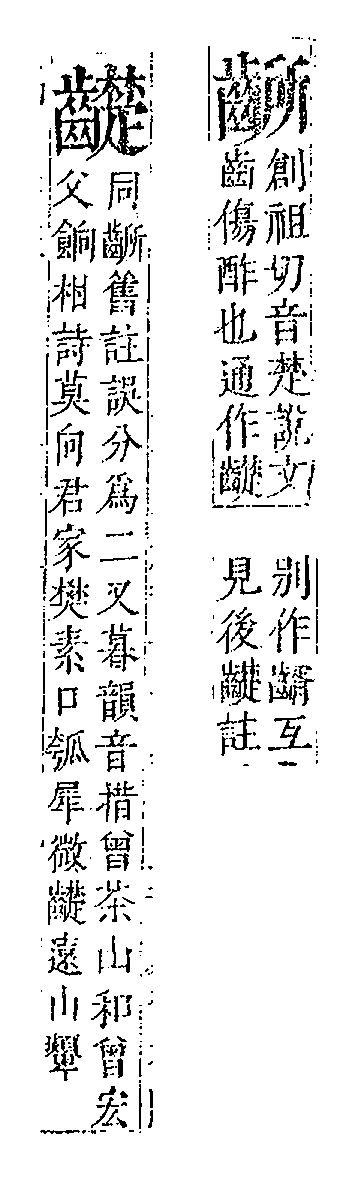 齭
創祖切音楚說文
齒傷酢也通作齼
別作䶒互
見後齼註
齼
同齭舊註誤分爲二又暮韻音措曾茶山和曾宏
父餉柑詩莫向君家樊素口瓠犀微齼遠山顰